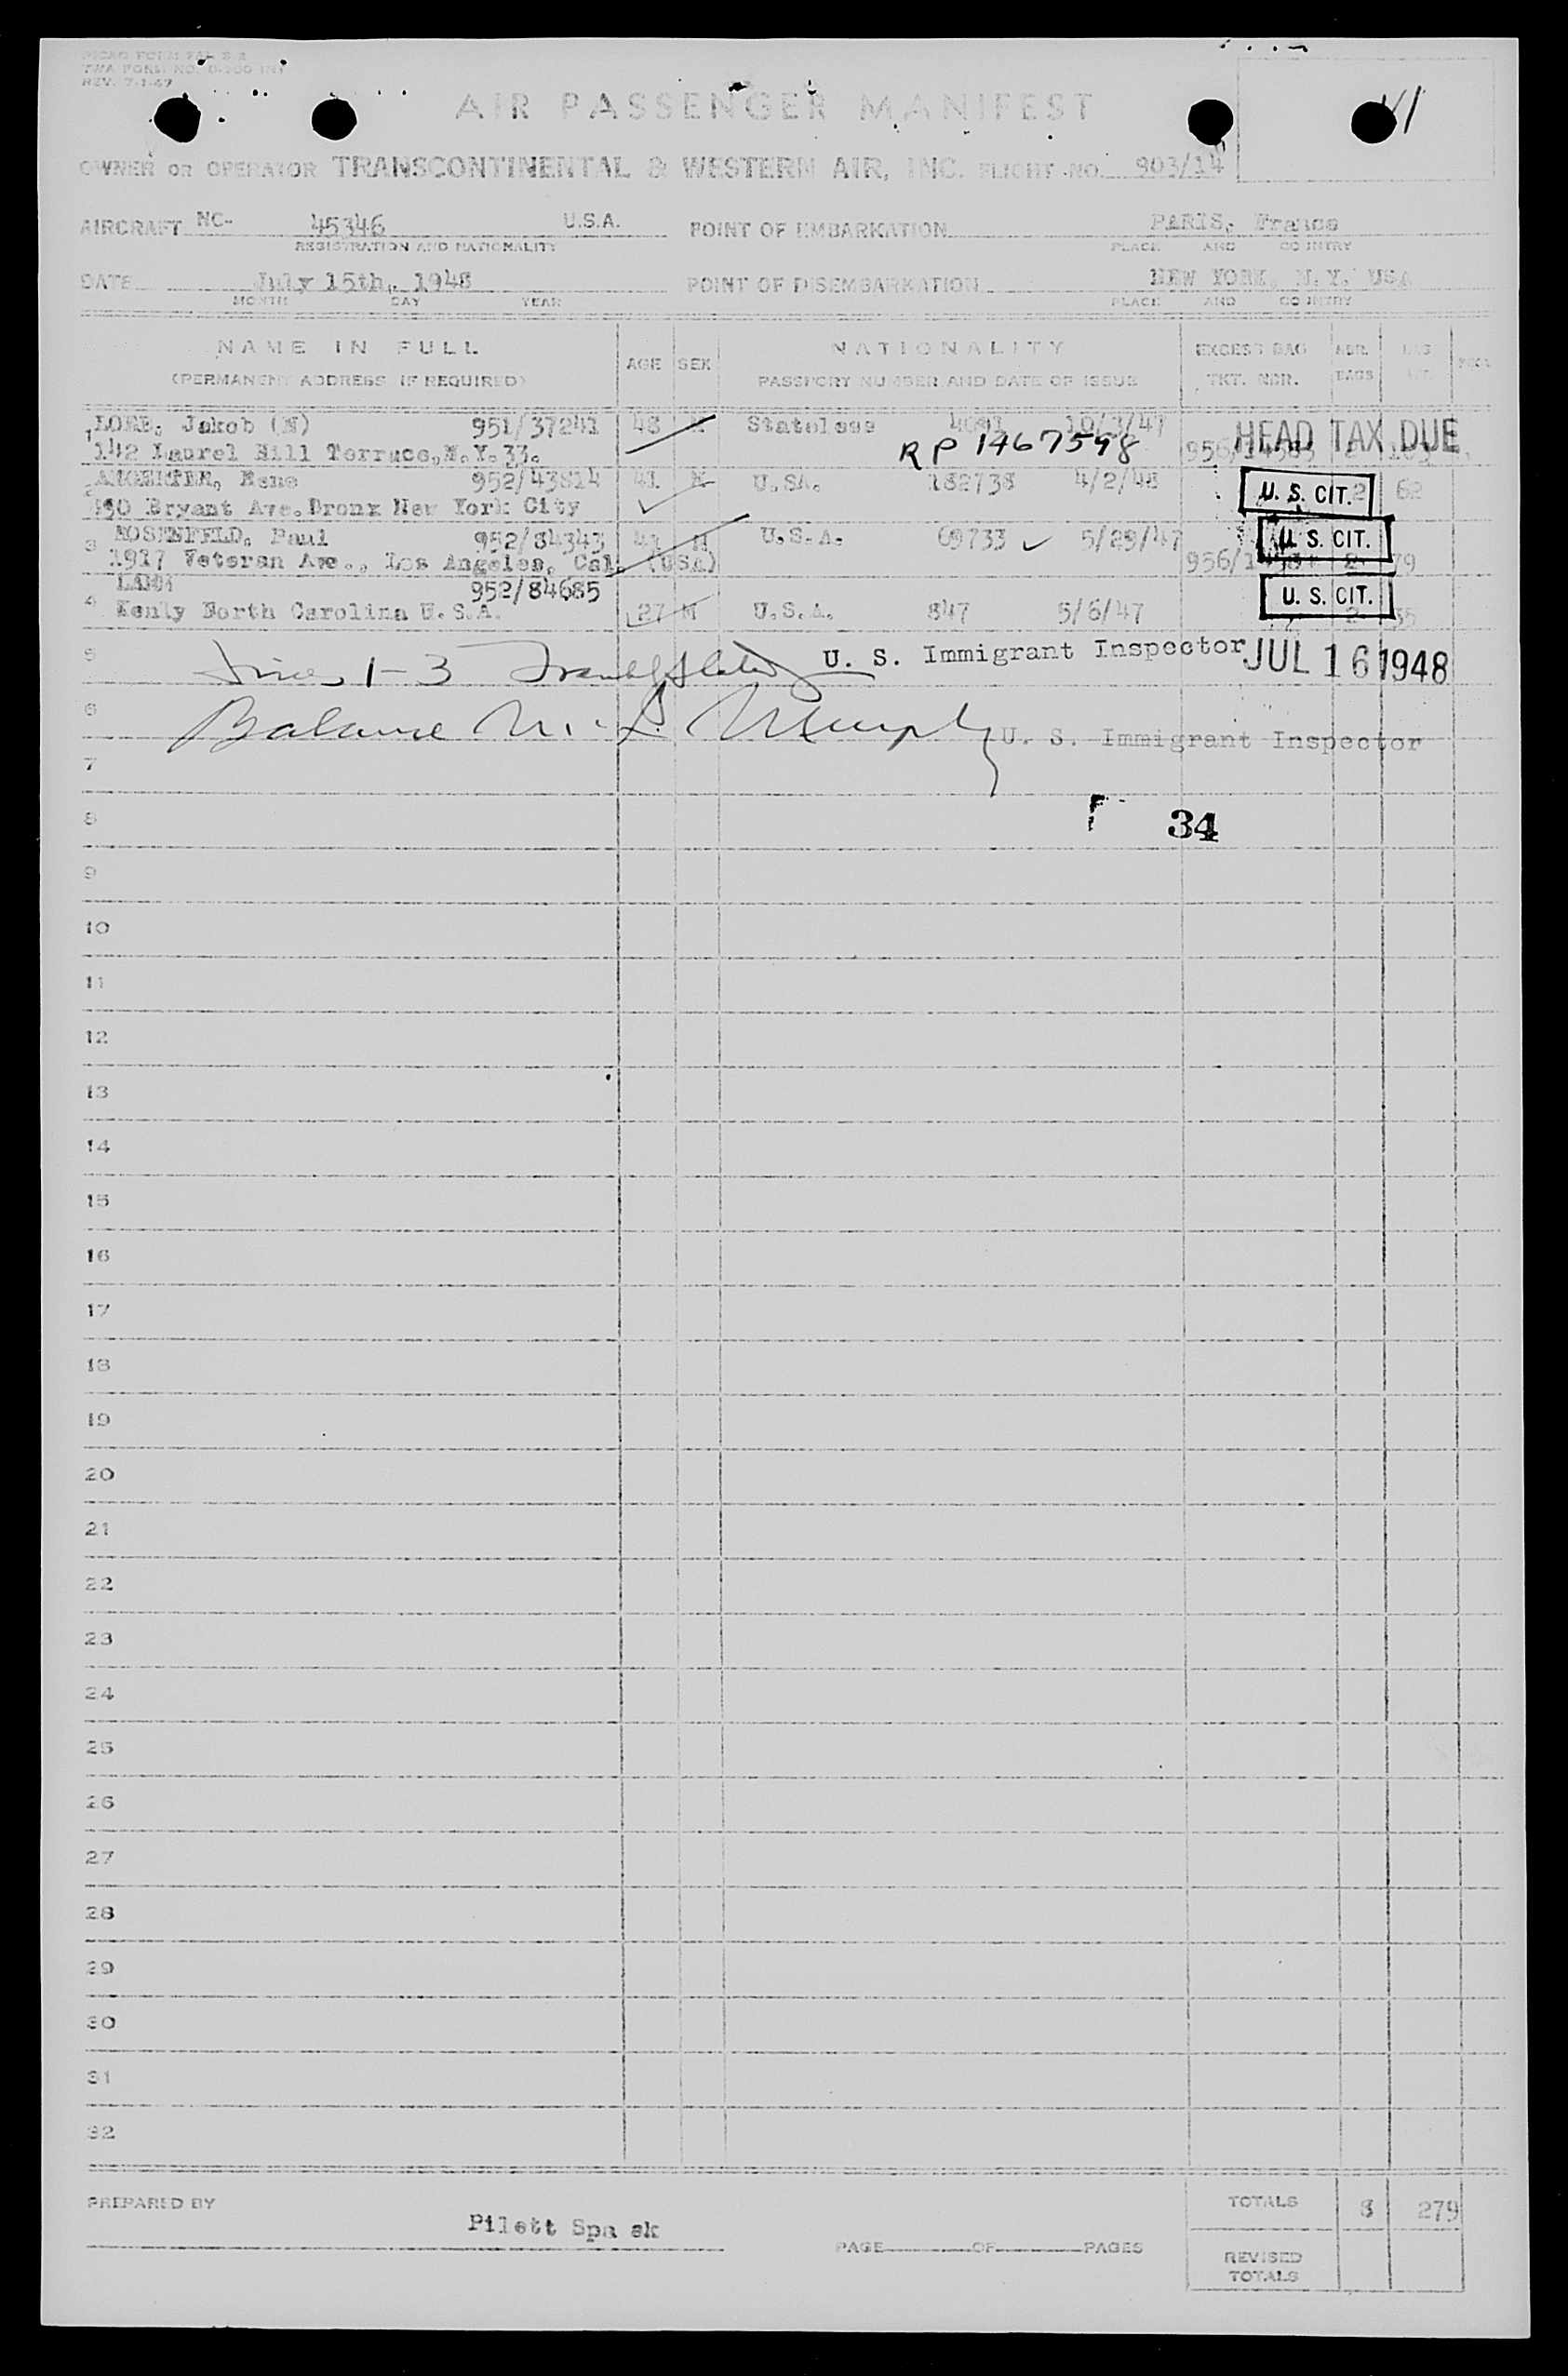 ICAO FORM FAL S-2
TWA FORM NO. O-200 INT
REV. 7-1-47
AIR PASSENGER MANIFEST
OWNER OR OPERATOR TRANSCONTINENTAL & WESTERN AIR, INC. FLIGHT NO. 903/14
AIRCRAFT NC- 45346 U.S.A. POINT OF EMBARKATION PARIS, France
REGISTRATION AND NATIONALITY PLACE AND COUNTRY
DATE July 15th, 1948 POINT OF DISEMBARKATION NEW YORK, N.Y. USA
MONTH DAY YEAR PLACE AND COUNTRY
NAME IN FULL AGE SEX NATIONALITY EXCESS BAG NBR. BAG
(PERMANENT ADDRESS IF REQUIRED) PASSPORT NUMBER AND DATE OF ISSUE TKT. NBR. BAGS
1 Jakob (N) 951/37241 48 M Stateless 10/3/47 HEAD TAX DUE
142 Laurel Hill Terrace, N.Y. 33. RP 1467598
2 Rene 952/43814 41 M U.SA. 182738 4/2/48 U. S. CIT. 2 62
Bryant Ave. Bronx New York City
3 ROSENFELD, Paul 952/84343 M U.S.A. 69733 5/29/47 U. S. CIT.
1917 Veteran Ave., Los Angeles, Cal. (USA) 2 79
4 952/84685 U. S. CIT.
Kenly North Carolina U.S.A. 27 M U.S.A. 847 5/6/47 2 35
5 1-3 U. S. Immigrant Inspector JUL 16 1948
6 Balance Murphy U. S. Immigrant Inspector
7
8 34
9
10
11
12
13
14
15
16
17
18
19
20
21
22
23
24
25
26
27
28
29
30
31
32
PREPARED BY Pilett TOTALS 8 279
PAGE OF PAGES
REVISED
TOTALS